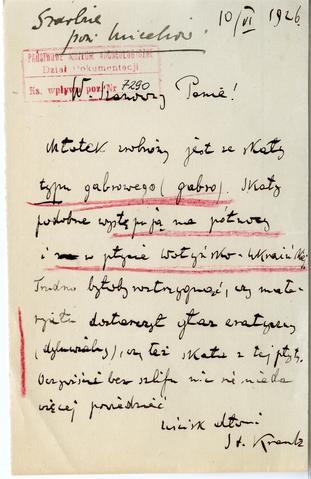 10/VI 1926
pow. Miechów.
PAŃSTWOWE MUZEUM ARCHEOLOGICZNE
Dział Dokumentacji
Ks. wpływu poz. Nr 7290
W. Szanowny Panie!
Młotek zrobiony jest ze skały
typu gabrowego (gabro). Skały
podobne występują na północy
i w płycie Wołyńsko-Ukraińskiej.
Trudno byłoby rozstrzygnąć, czy mate-
ryału dostarczył głaz eratyczny
(dyluwialny), czy też skała z tej płyty.
Oczywiście bez szlifu nic się nie da
więcej powiedzieć
uścisk dłoni
St. Kreutz